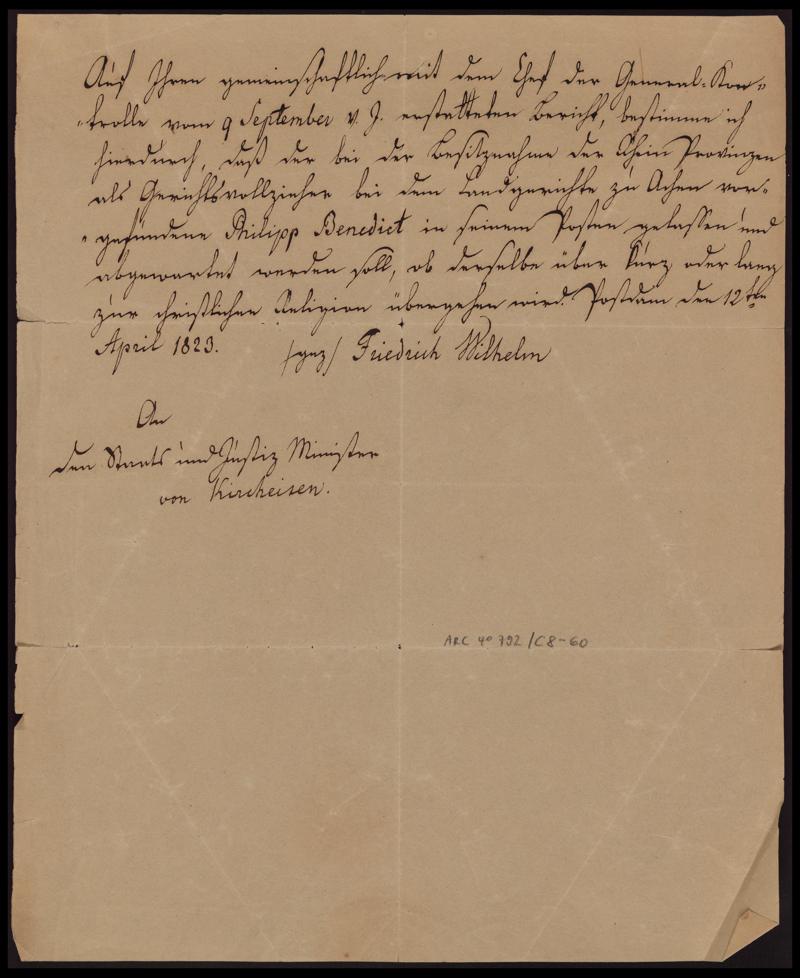 Auf Ihren gemeinschaftlich mit dem Chef der General-Kon-
trolle vom 9 September v. J. erstatteten Bericht, bestimme ich
hierdurch, daß der bei der Besitznahme der Rhein Provinzen
als Gerichtsvollzieher bei dem Landgerichte zu Achen vor-
gefundene Philipp Benedict in seinem Posten gelassen und
abgewartet werden soll, ob derselbe über kurz oder lang
zur christlichen Religion übergehen wird. Postdam den 12ten
April 1823. /gez/ Friedrich Wilhelm
An
den Staats und Justiz Minister
von Kircheisen.
ARC 4° 792 /C8-60